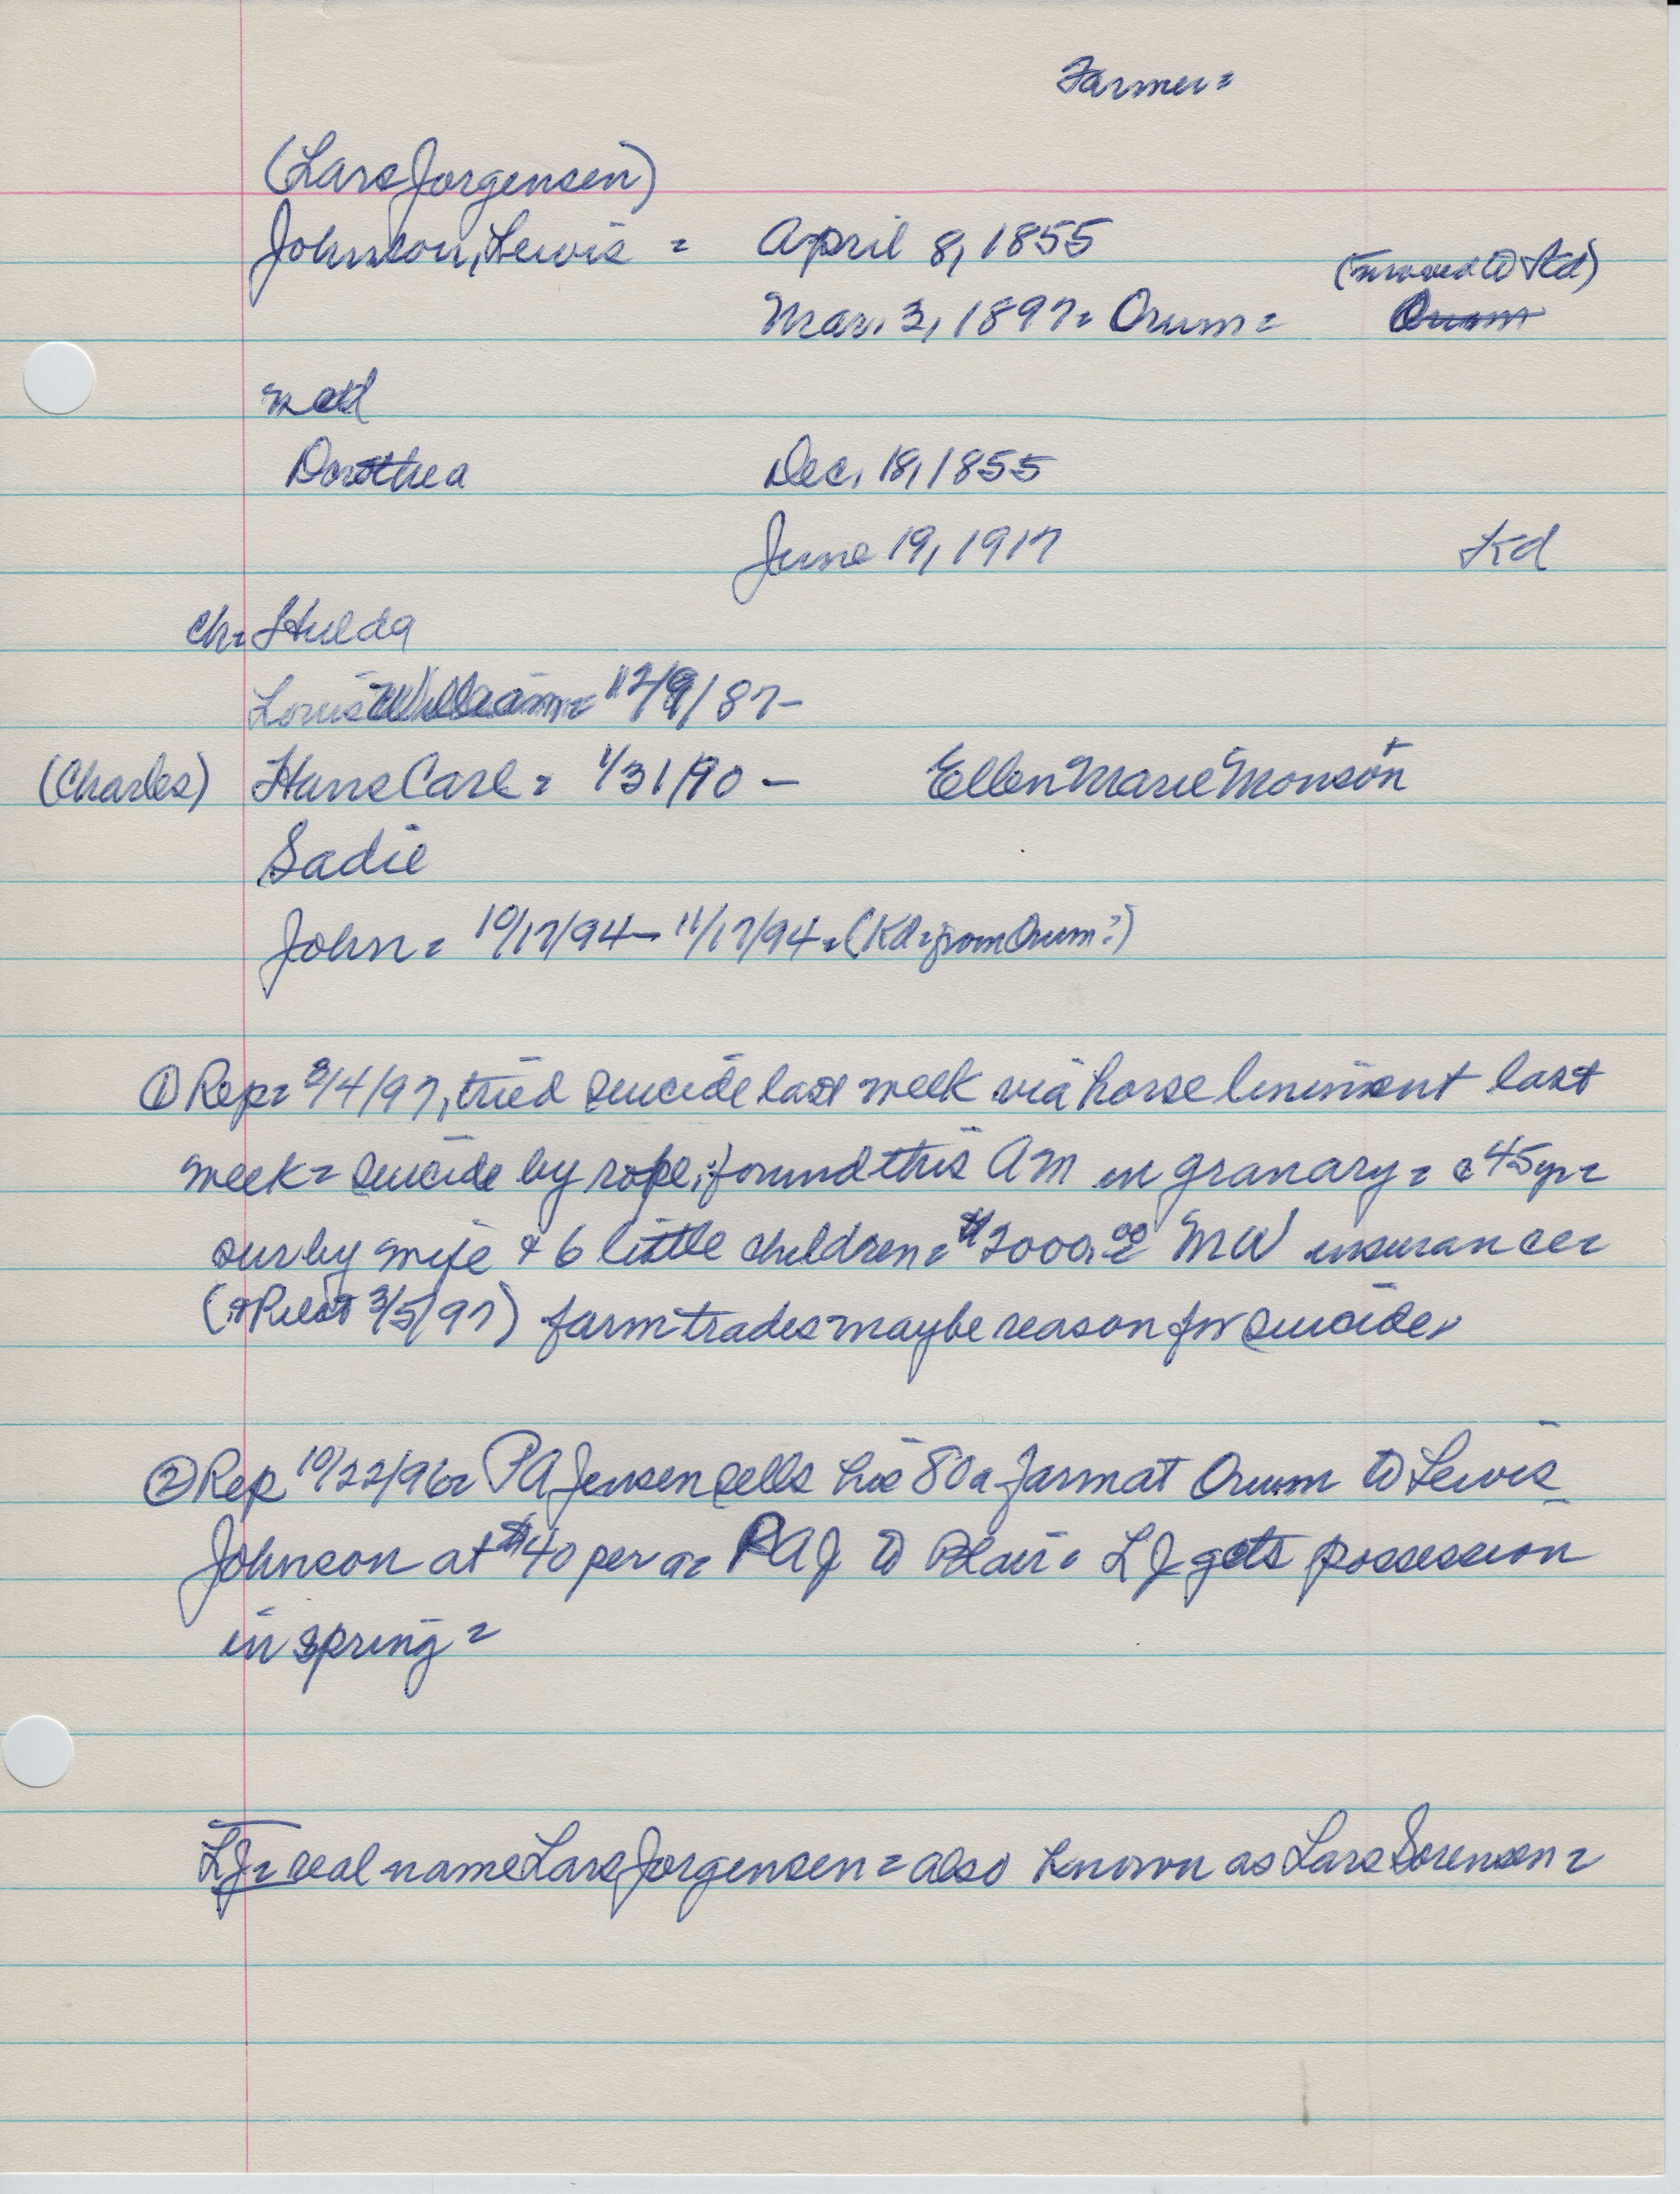 Farmer=
(Lars Jorgensen)
Johnson, Lewis = April 8, 1855
(moved to Kd)
Mar. 3, 1897= Orum= Orum
mod
Dorothea Dec. 18, 1855
June 19, 1917 Kd
ch= Hulda
Louis William= 12/9/87-
(Charles) Hans Carl= 1/31/90 - Ellen Marie Monson +
Sadie
John= 10/17/94- 11/17/94=(Kd=from Orum?)
① Rep= 3/4/97, tried suicide last week via horse liniment last
week= suicide by rope; found this AM in granary= c 45yr=
sur by wife + 6 little children= $2000.00 MW insurance=
(+Pilot 3/5/97) farm trades maybe reason for suicide=
② Rep 10/22/96= PA Jensen sells his 80a farm at Orum to Lewis
Johnson at $40 per a= PAJ to Blair= LJ gets possession
in spring=
LJ= real name Lars Jorgensen= also known as Lars Sorensen=